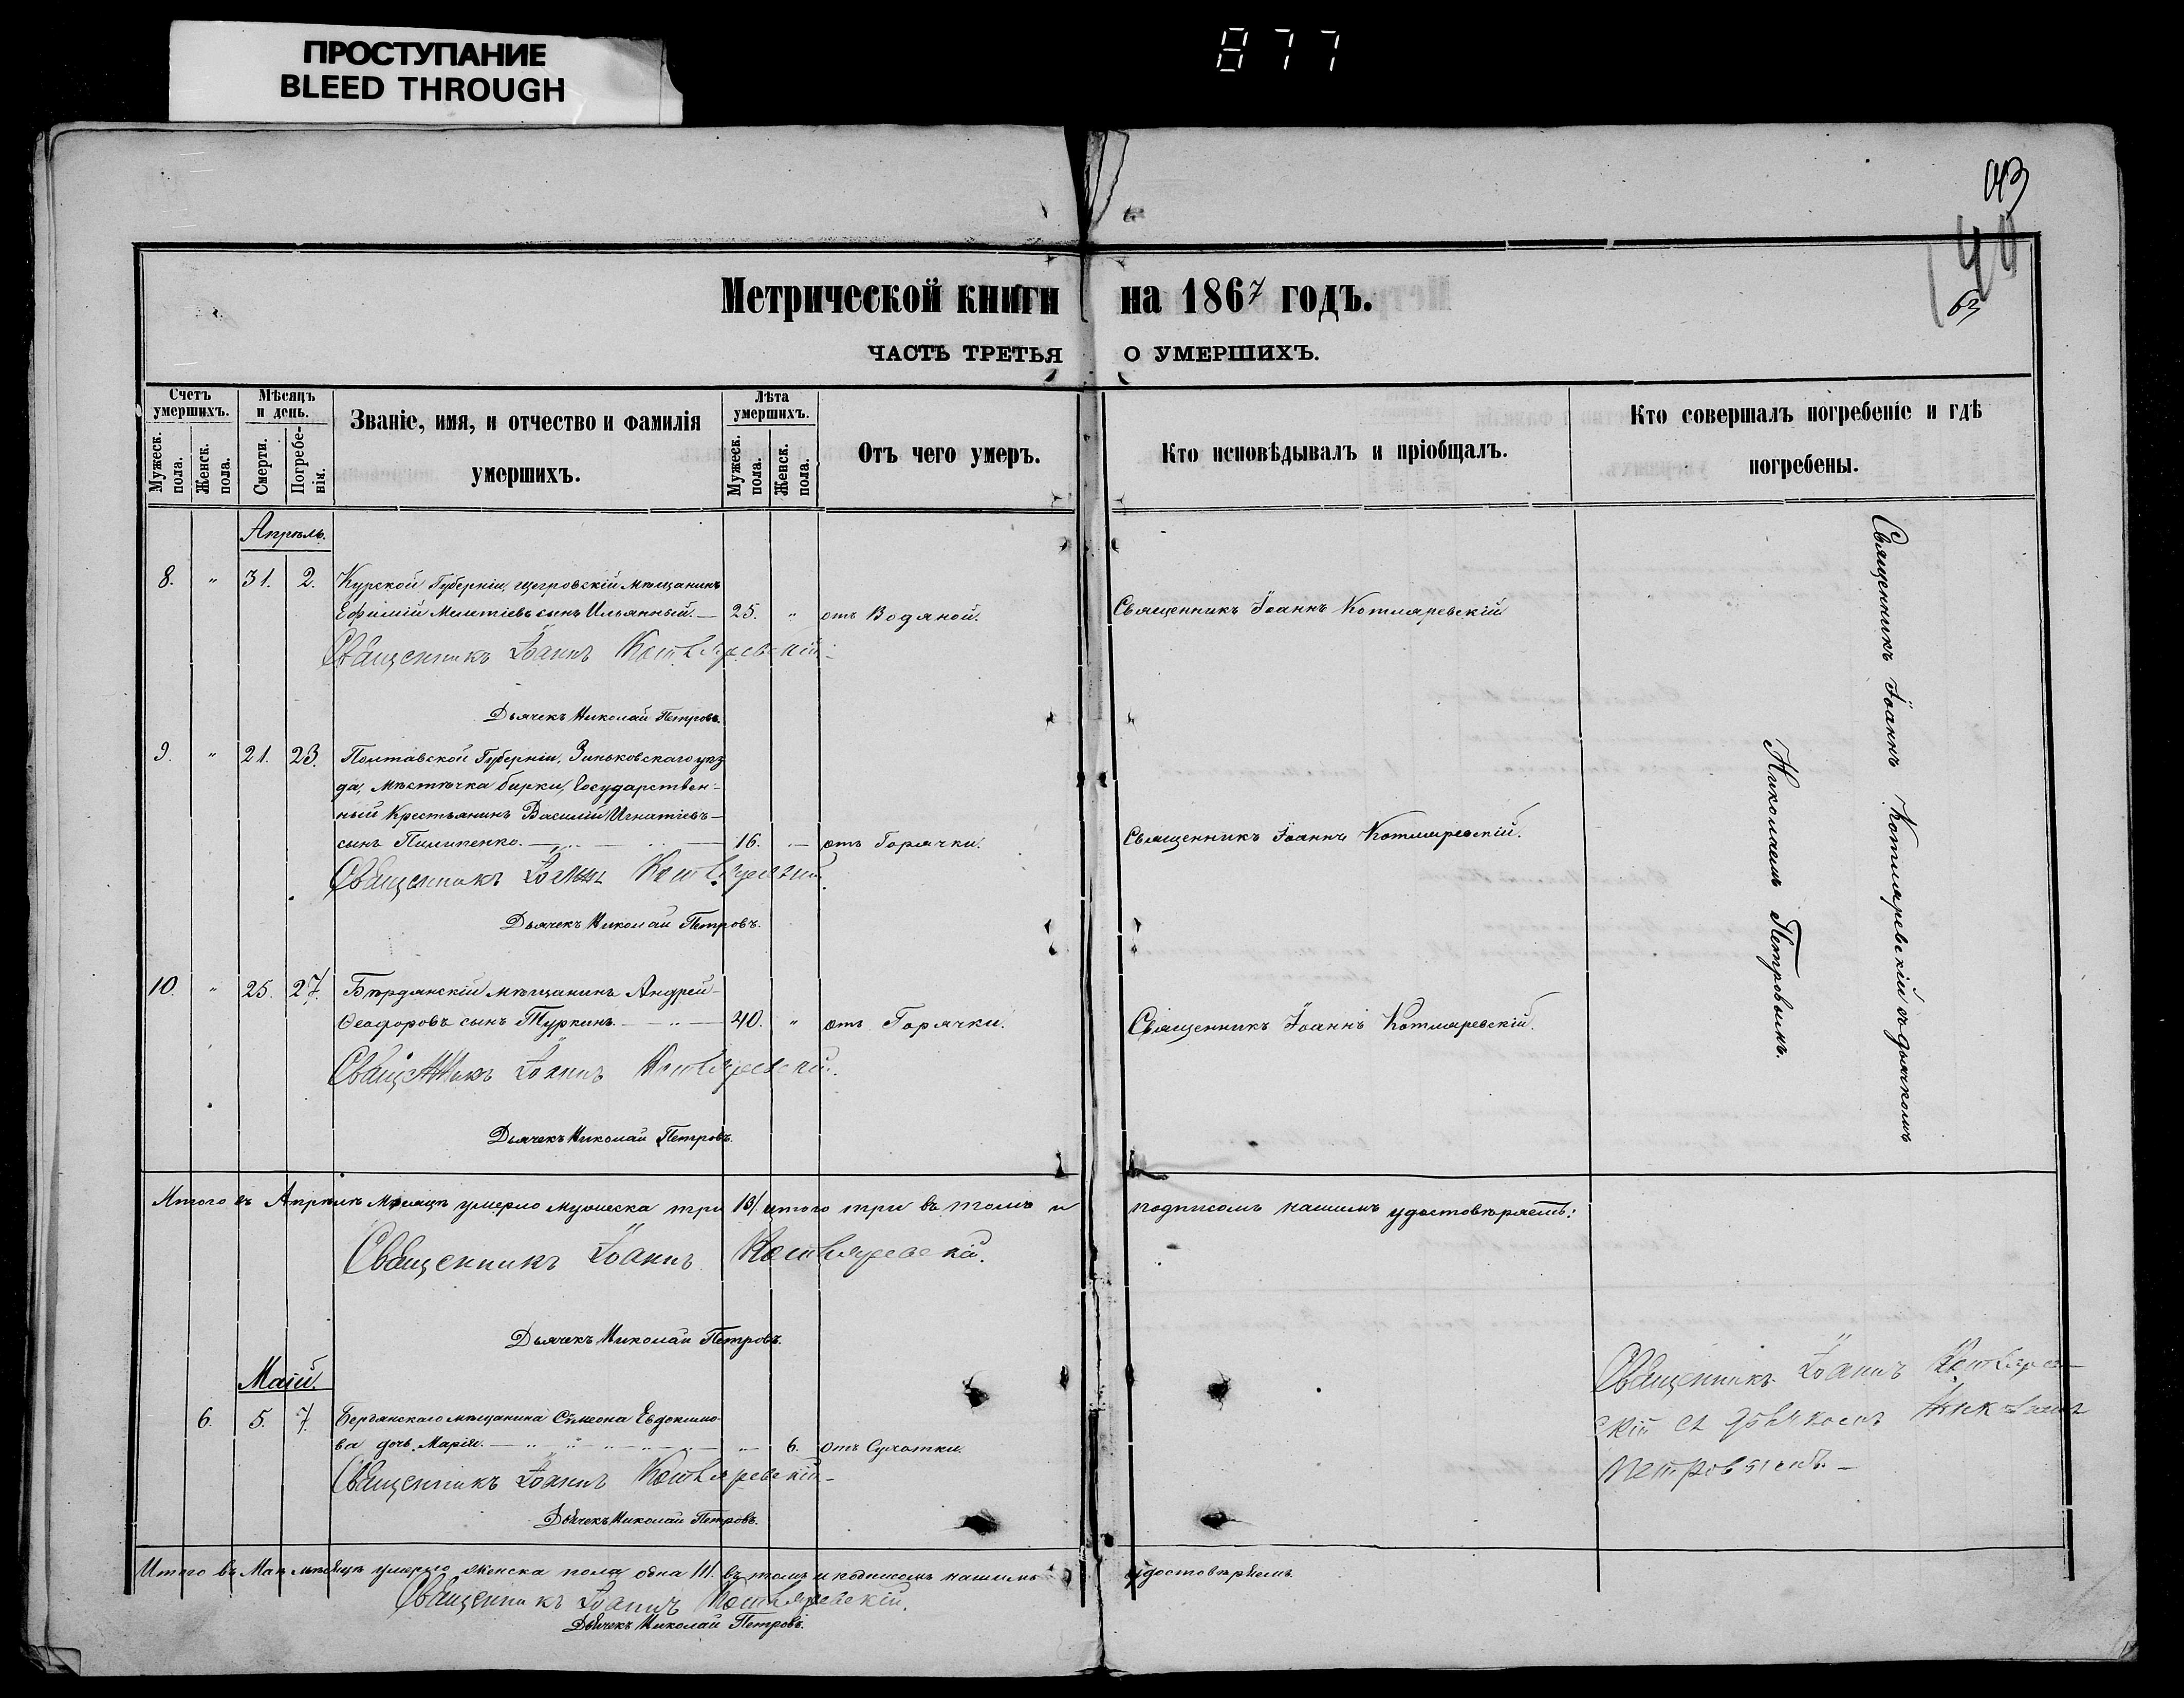 ПРОСТУПАНИЕ
BLEED THROUGH
877
43
63
Метрической книги на 1867 годъ.
ЧАСТЬ ТРЕТЬЯ О УМЕРШИХЪ.
Счетъ умершихъ.
Мужеск. пола.
Женск. пола.
Мѣсяцъ и день.
Смерти.
Погребенія.
Званіе, имя, и отчество и фамилія
умершихъ.
Лѣта умершихъ.
Мужеск. пола.
Женск. пола.
Отъ чего умеръ.
Кто исповѣдывалъ и пріобщалъ.
Кто совершалъ погребеніе и гдѣ
погребены.
Апрѣль.
8. " 31. 2. Курской Губерніи, щегровскій мѣщанинъ
Ефимій Мелетіевъ сынъ Ильянный. — 25. " отъ Водяной. Священникъ Іоаннъ Котляревскій
Священникъ Іоаннъ Котляревскій
Дьячекъ Николай Петровъ.
9. " 21. 23. Полтавской Губерніи, Зиньковскаго уѣз
да, мѣстечка бирки, Государствен-
ный Крестьянинъ Василій Игнатіевъ
сынъ Пилипенко. — 16. — отъ Горячки. Священникъ Іоаннъ Котляревскій.
Священникъ Іоаннъ Котляревскій.
Дьячекъ Николай Петровъ.
10. " 25. 27. Бердянскій мѣщанинъ Андрей
Ѳеодоровъ сынъ Туркинъ. — 40. " отъ Горячки. Священникъ Іоаннъ Котляревскій.
Священникъ Іоаннъ Котляревскій.
Дьячекъ Николай Петровъ.
Священникъ Іоаннъ Котляревскій съ дьячкомъ
Николаемъ Петровымъ.
Итого въ Апрѣлѣ Мѣсяцѣ умерло мужеска три /3/ итого три въ томъ и подписомъ нашимъ удостовѣряемъ:
Священникъ Іоаннъ Котляревскій.
Дьячекъ Николай Петровъ.
Маій.
6. 5. 7. Бердянскаго мѣщанина Сѵмеона Евдокимо-
ва дочь Марія. — 6. отъ Сухотки.
Священникъ Іоаннъ Котляревскій
Дьячекъ Николай Петровъ.
Священникъ Іоаннъ Котлярев
скій съ дьячкомъ Николаемъ
Петровымъ. —
Итого въ Маѣ мѣсяцѣ умерло женска пола одна /1/. въ томъ и подписомъ нашимъ удостовѣряемъ.
Священникъ Іоаннъ Котляревскій.
Дьячекъ Николай Петровъ.